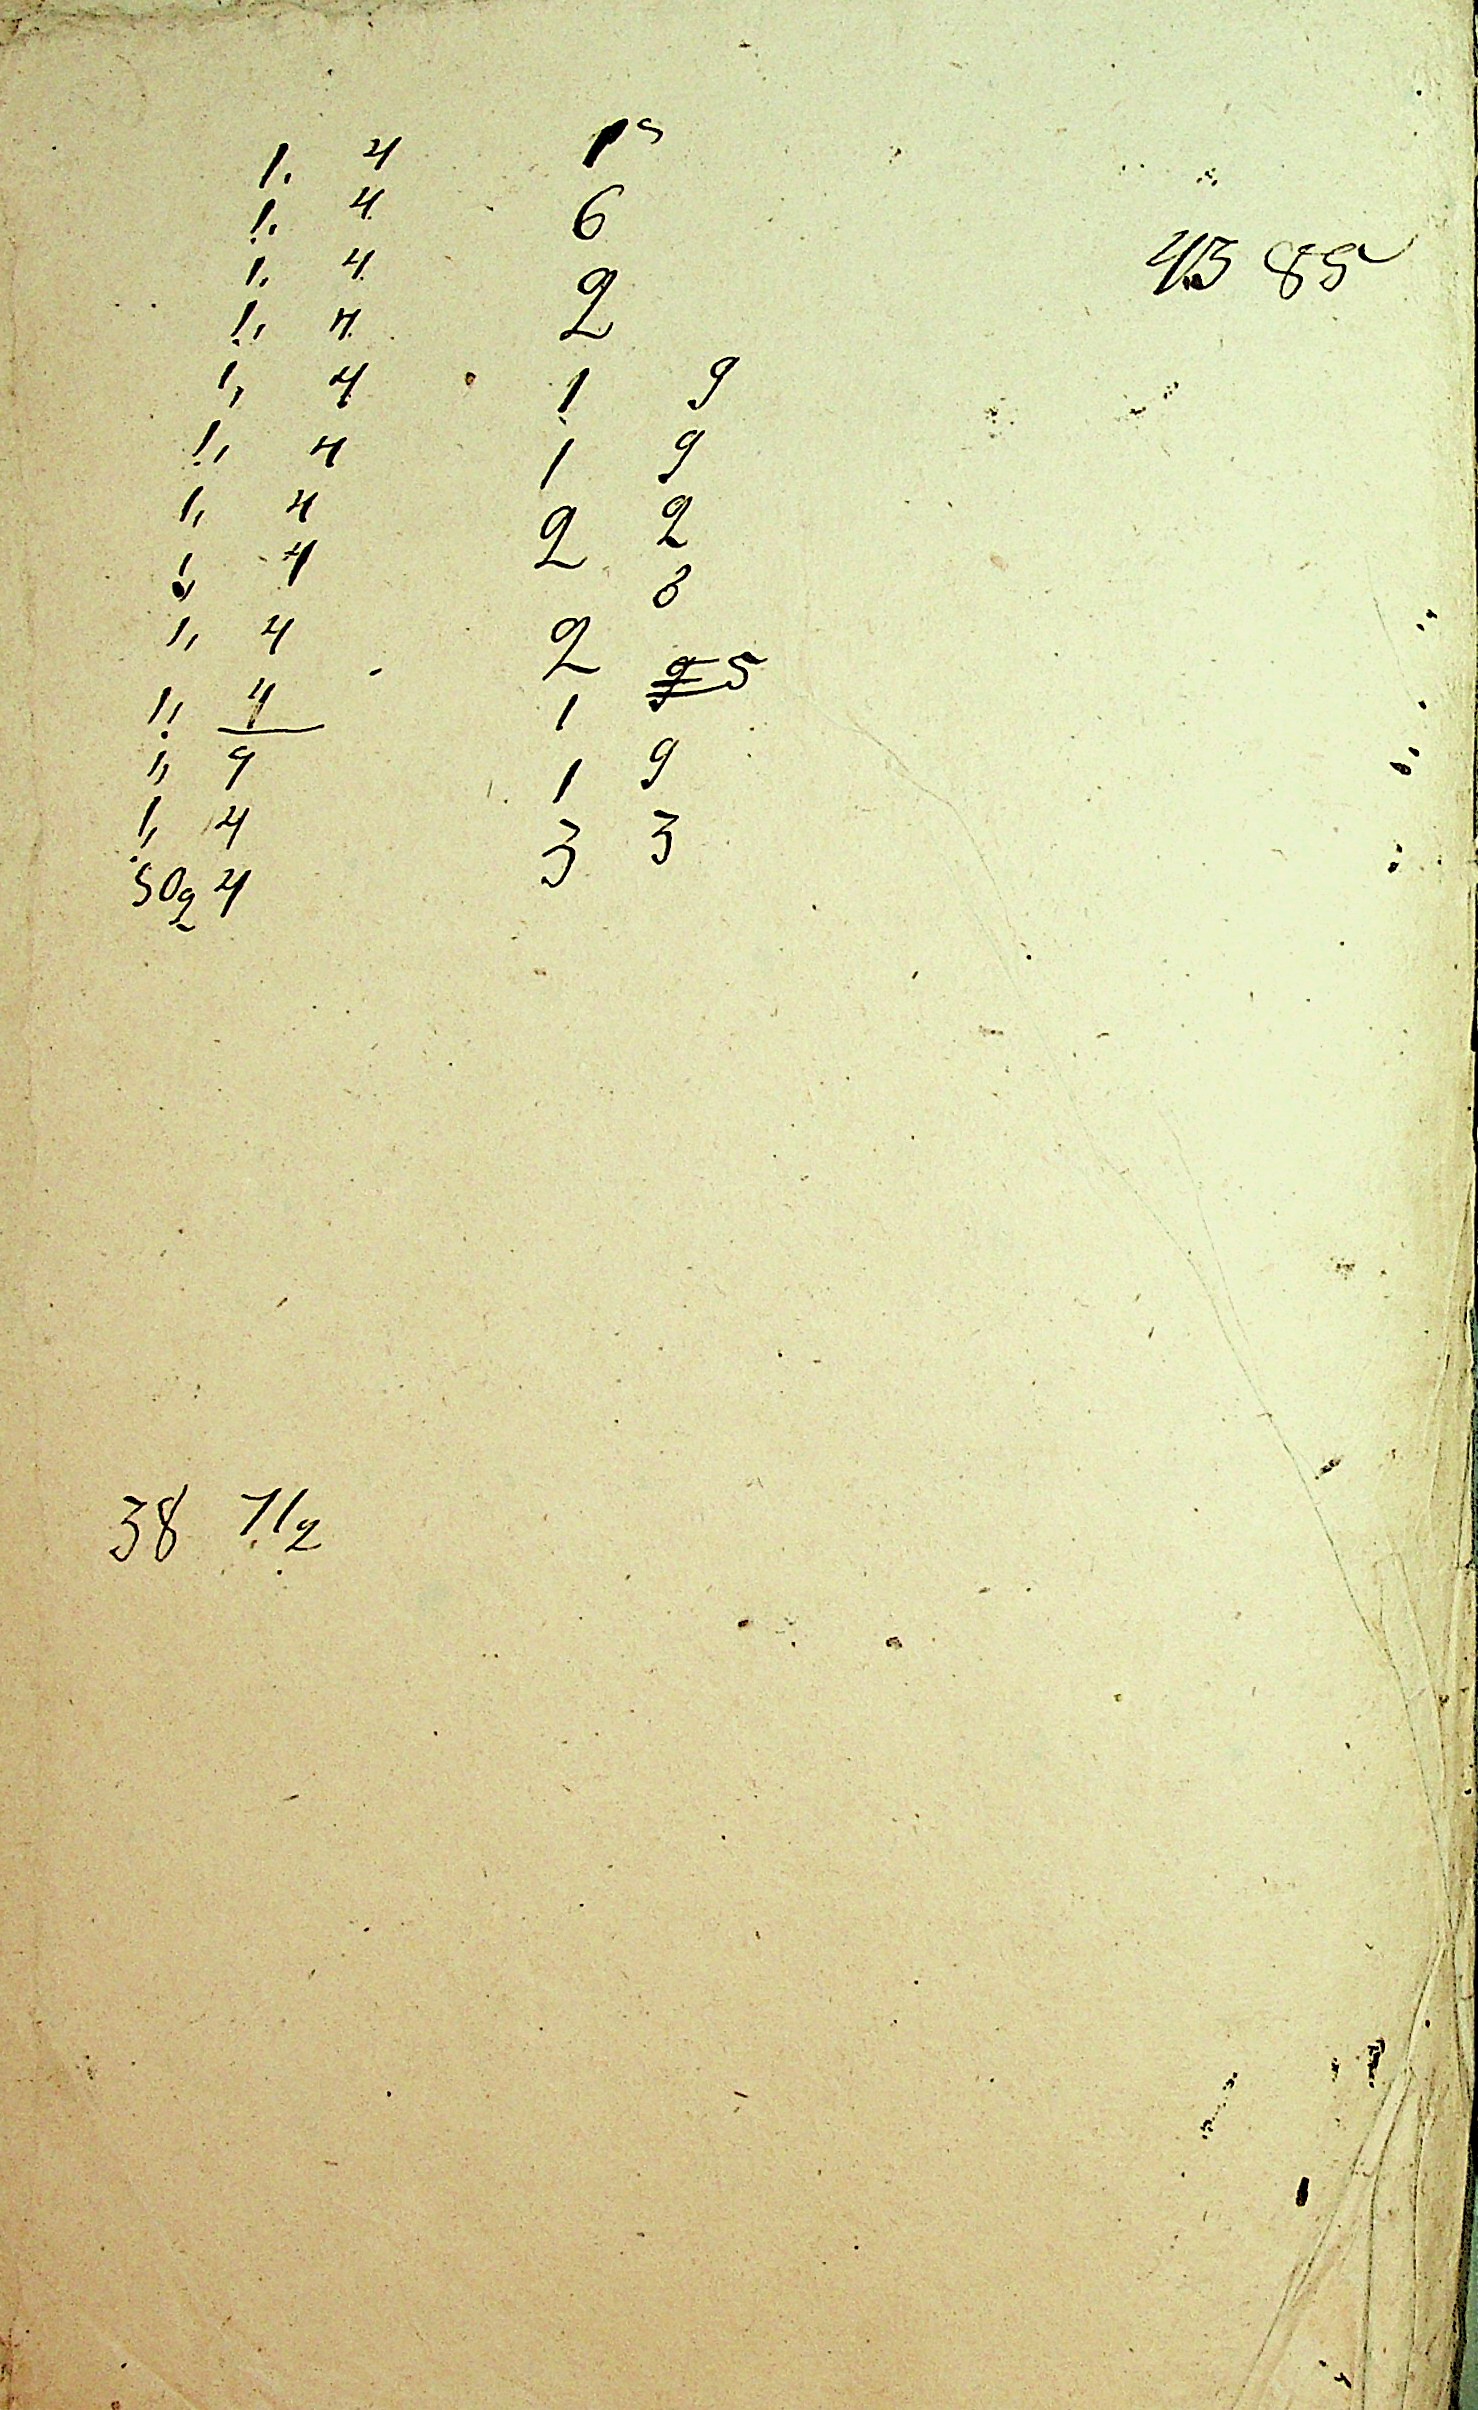 1. 4 1 5
1. 4 6
1, 4 2 43 85
1, 4
1, 4 1 9
1, 4 1 9
1, 4 2 2
1, 4 8
1, 4 2
1, 4 1 9 5
1, 9 1 9
1, 4 3 3
502 4
38 7 1/2